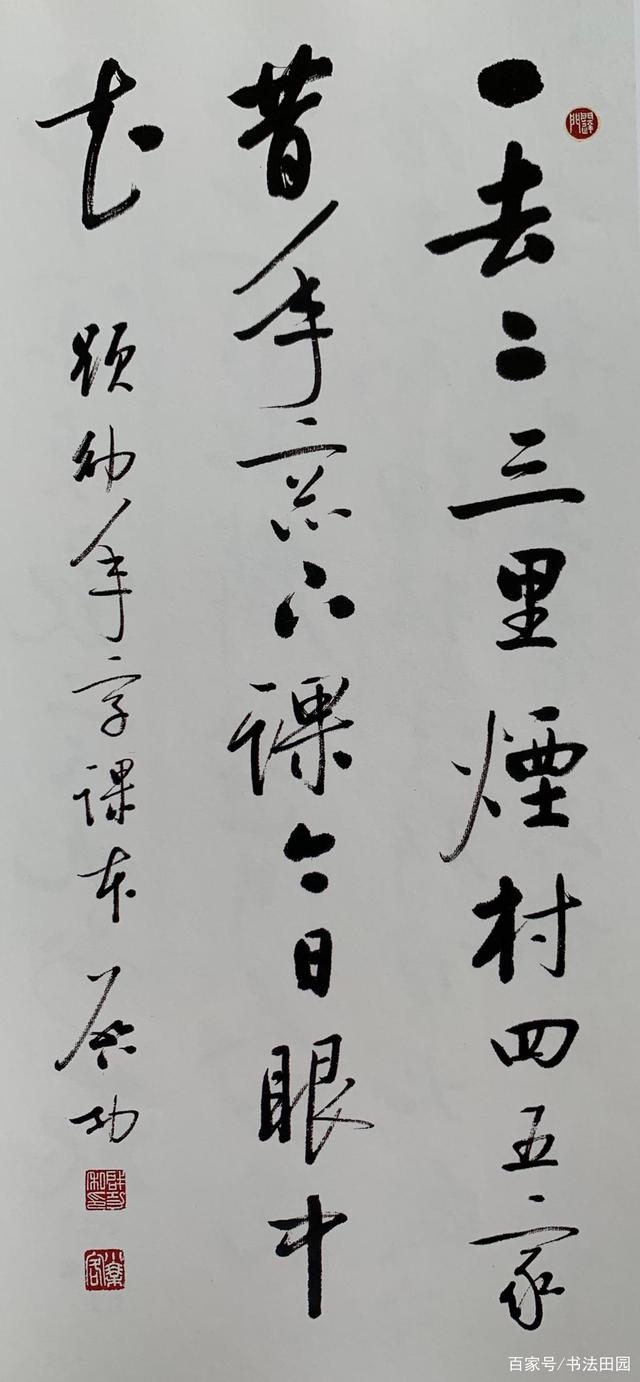 一去二三里煙村四五家
昔年窗下課今日眼中
花
題幼年字課本 啟功
百家号/书法田园